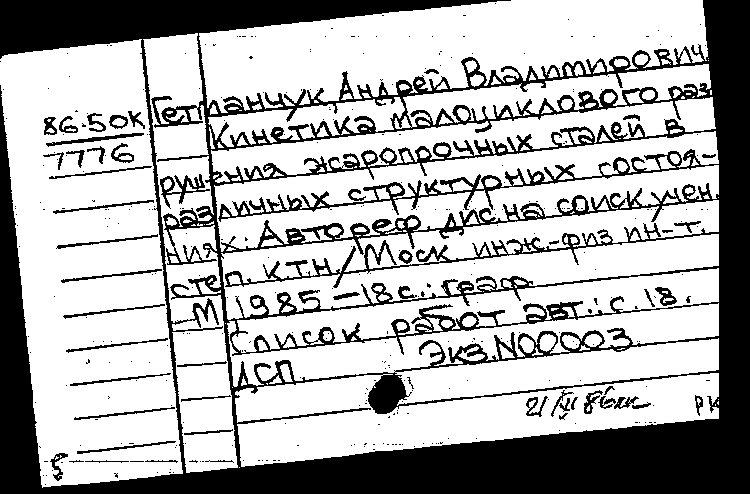 86-50К
7776
Гетманчук, Андрей Владимирович.
Кинетика малоциклового раз-
рушения жаропрочных сталей в
различных структурных состоя-
ниях: Автореф. дис. на соиск. учен.
степ. к.т.н. / Моск инж.-физ. ин-т.
М 1985. – 18 с.: граф.
Список работ авт.: с. 18.
ДСП. Экз. N00003
РК